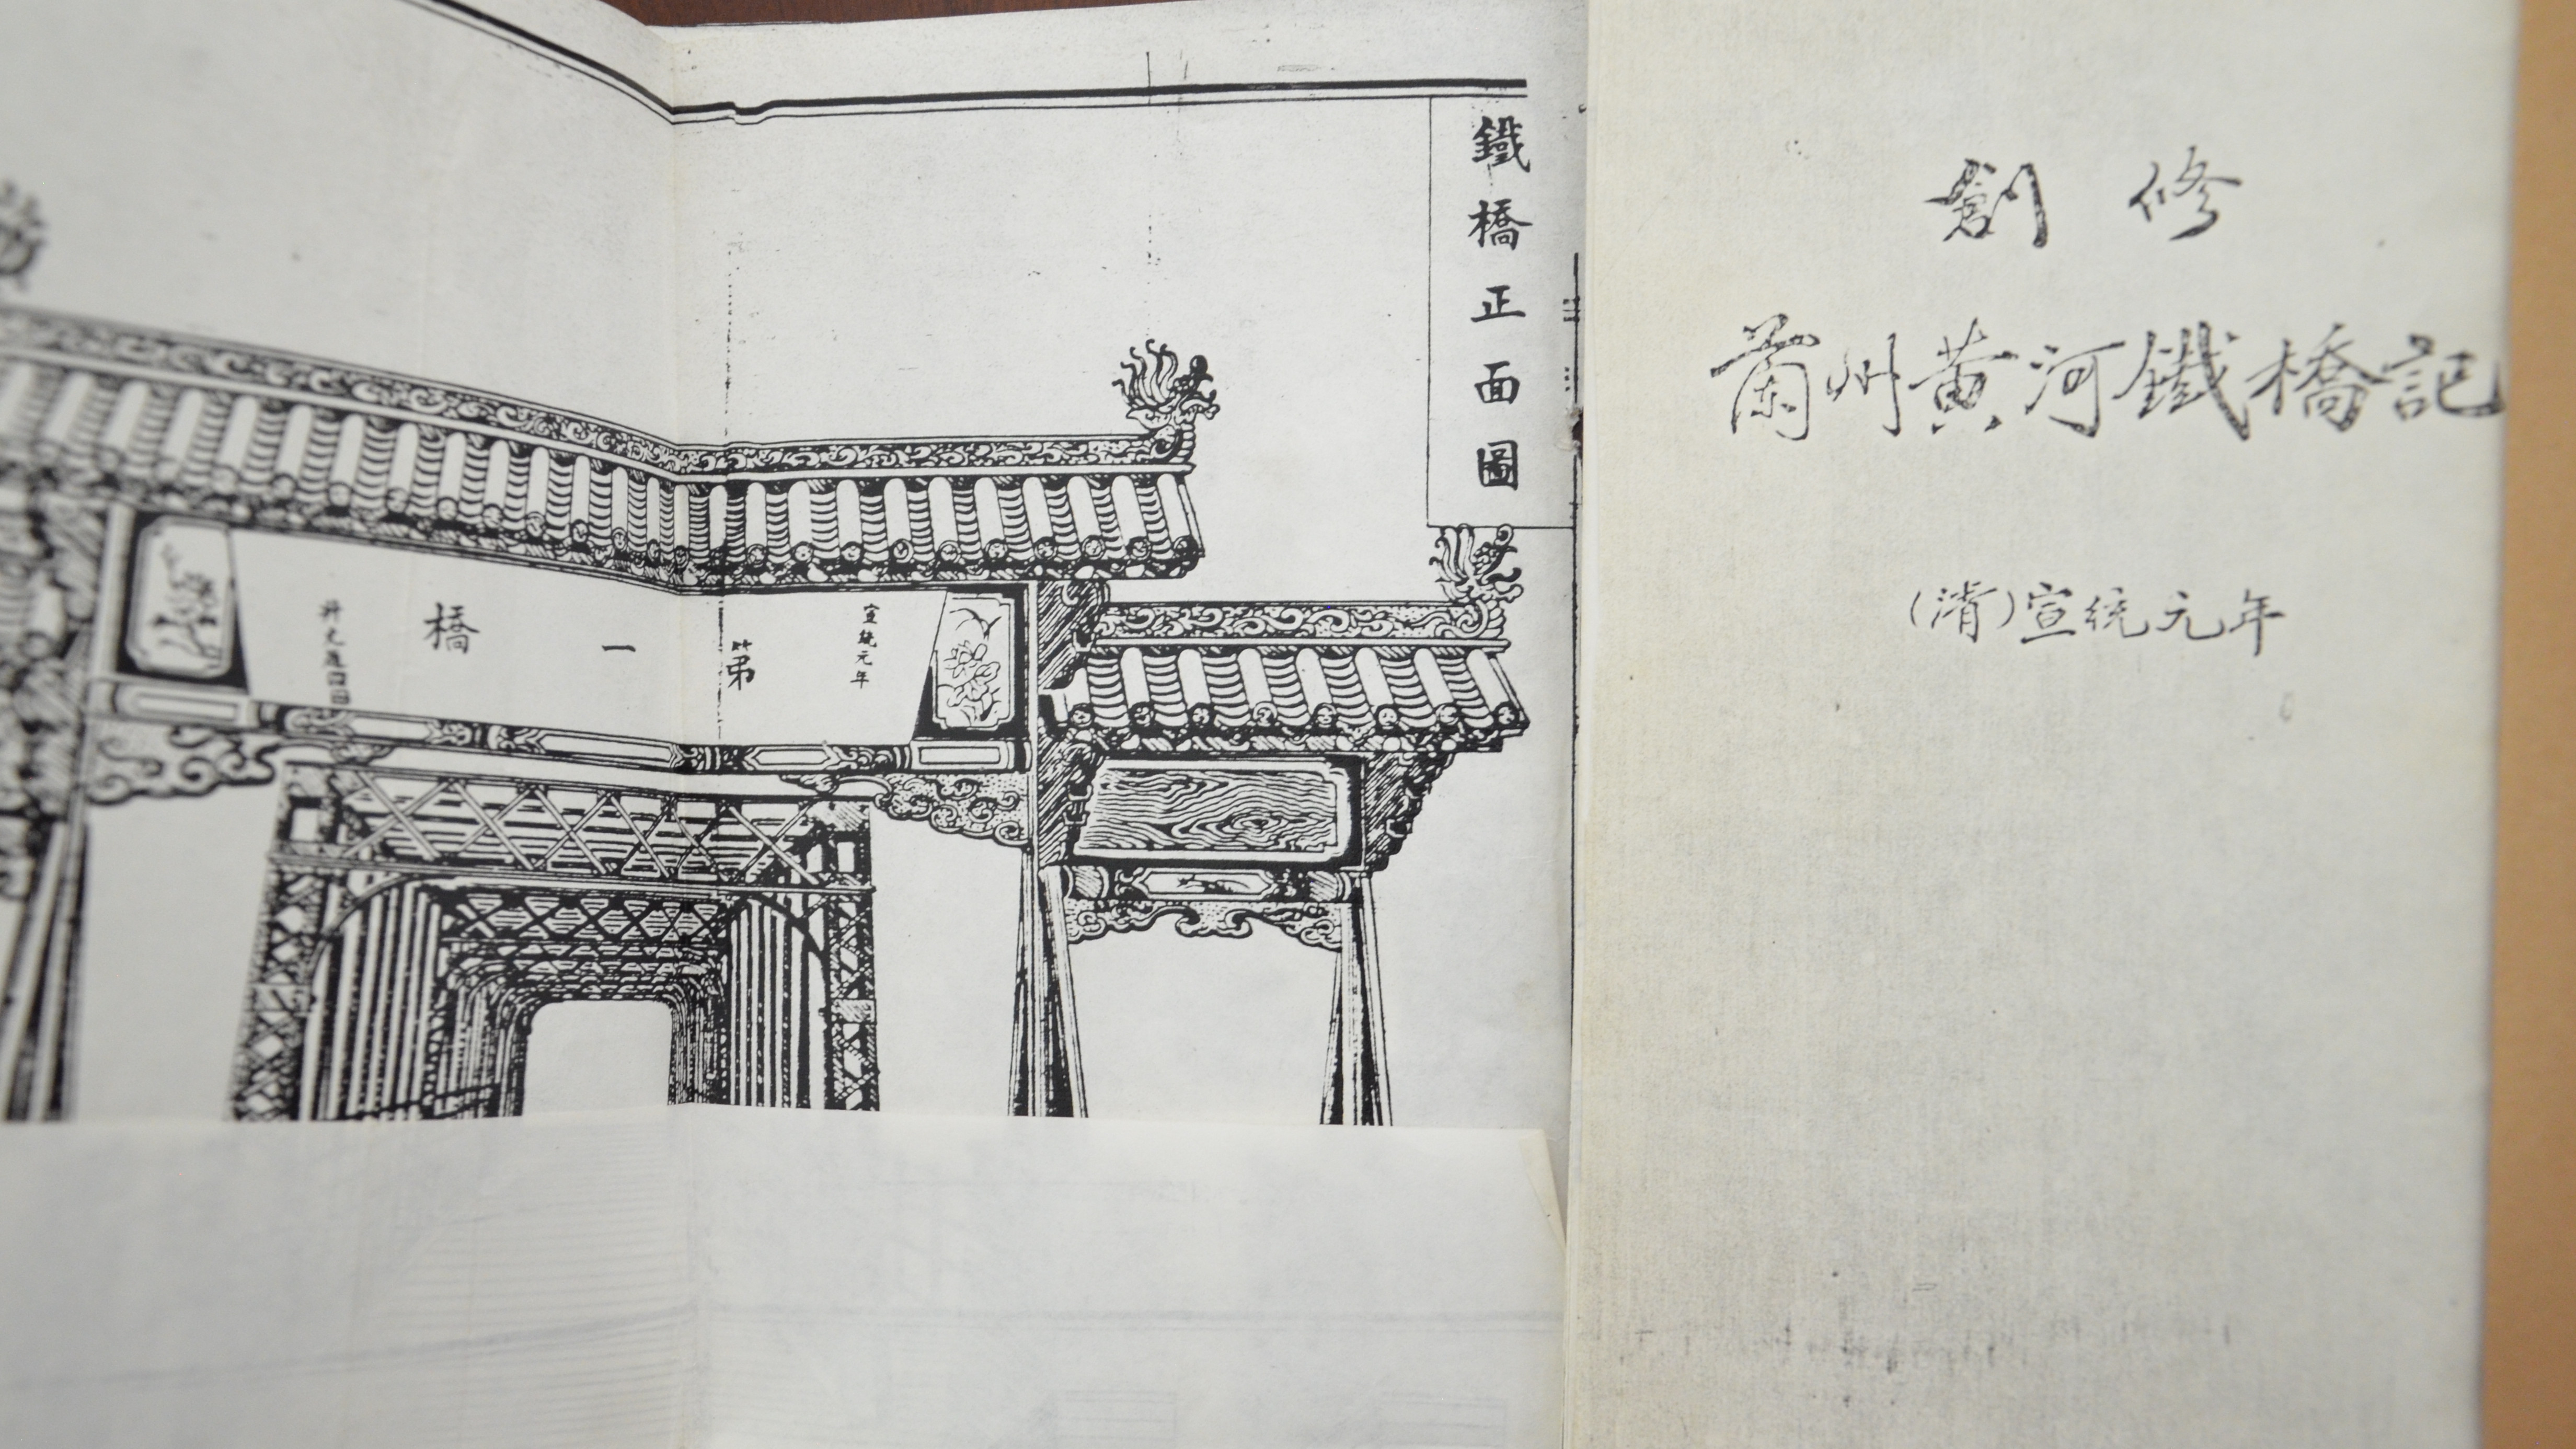 創修
蘭州黄河鐵橋記
(清)宣統元年
鐵橋正面圖
宣統元年
第一橋
升允題